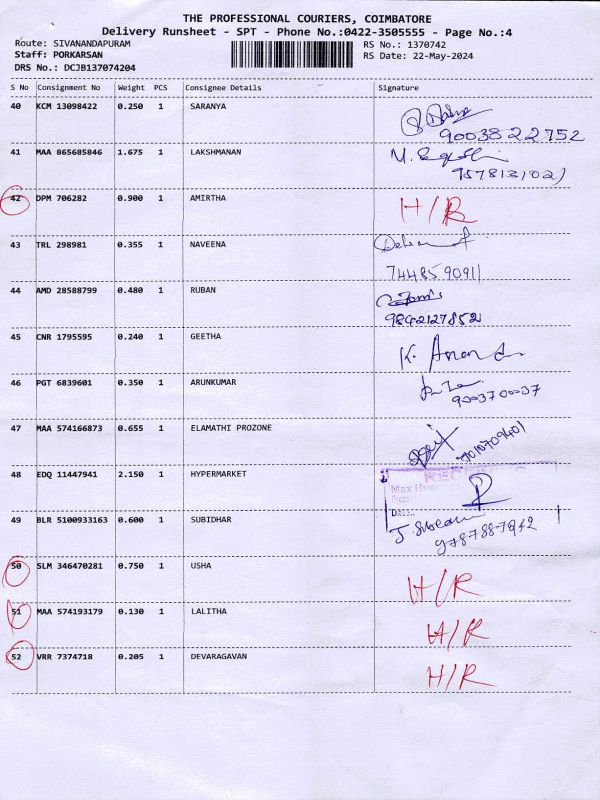 THE PROFESSIONAL COURIERS, COIMBATORE
Delivery Runsheet - SPT - Phone No.:0422-3505555 - Page No.:4
Route: SIVANANDAPURAM RS No.: 1370742
Staff: PORKARSAN RS Date: 22-May-2024
DRS No.: DCJB137074204
S No Consignment No Weight PCS Consignee Details Signature
40 KCM 13098422 0.250 1 SARANYA
9003822752
41 MAA 865685846 1.675 1 LAKSHMANAN
42 DPM 706282 0.900 1 AMIRTHA H/R
43 TRL 298981 0.355 1 NAVEENA
7448590911
44 AMD 28588799 0.480 1 RUBAN
9842127852
45 CNR 1795595 0.240 1 GEETHA
K. Anand
46 PGT 6839601 0.350 1 ARUNKUMAR
900370037
47 MAA 574166873 0.655 1 ELAMATHI PROZONE
7010709401
48 EDQ 11447941 2.150 1 HYPERMARKET
49 BLR 5100933163 0.600 1 SUBIDHAR
50 SLM 346470281 0.750 1 USHA H/R
51 MAA 574193179 0.130 1 LALITHA H/R
52 VRR 7374718 0.205 1 DEVARAGAVAN H/R